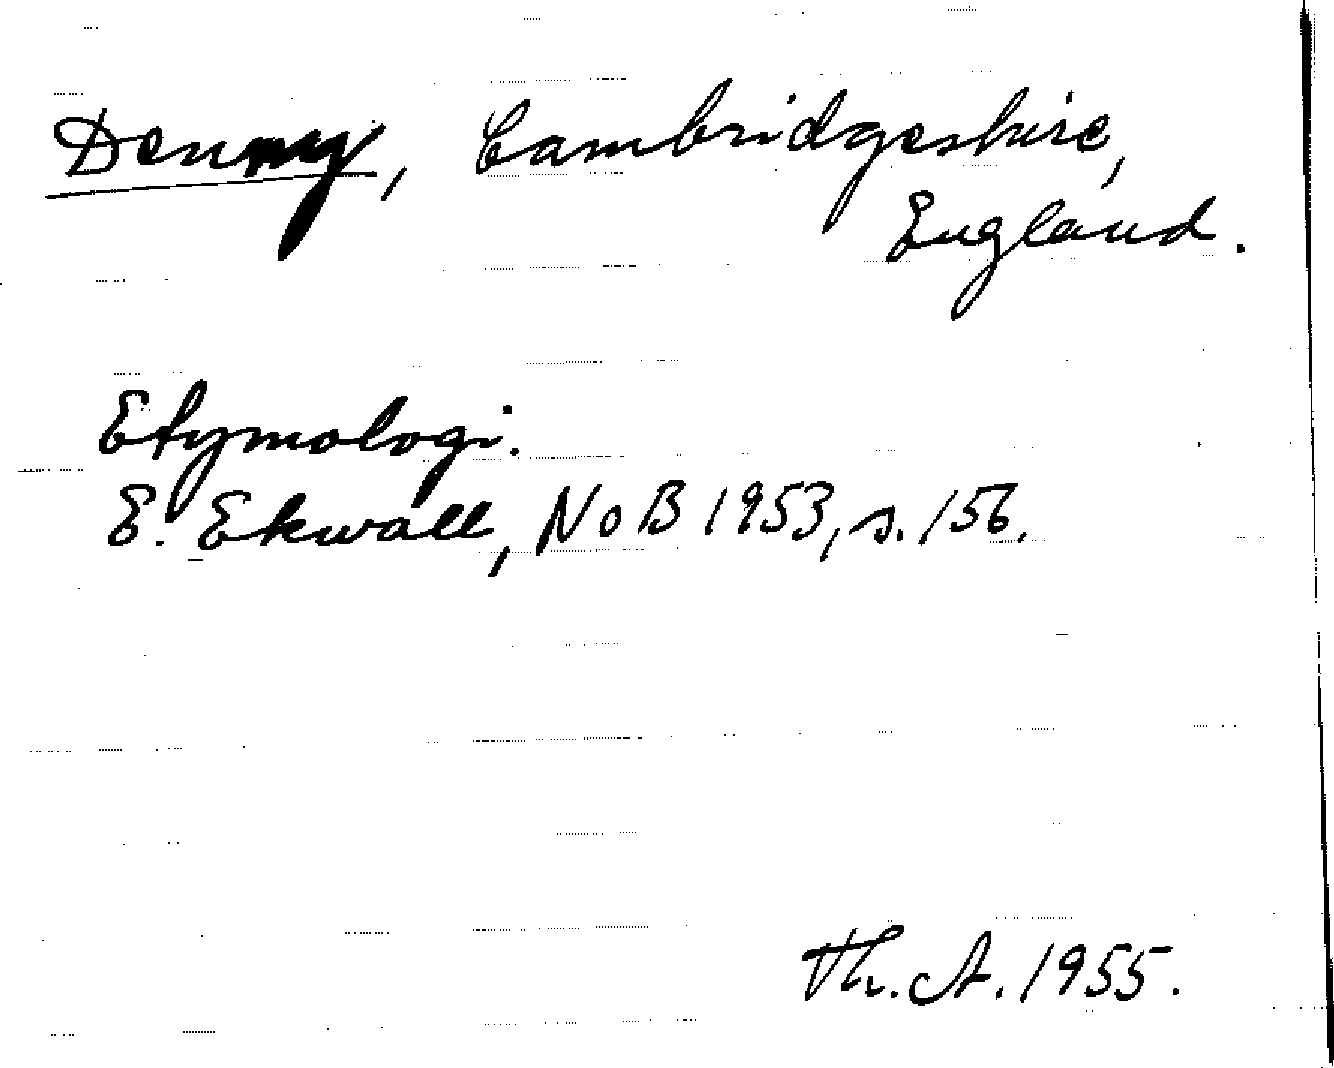 Denny, Cambridgeshire,
England.
Etymologi.
E. Ekwall, NoB 1953, s. 156.
Th. A. 1955.